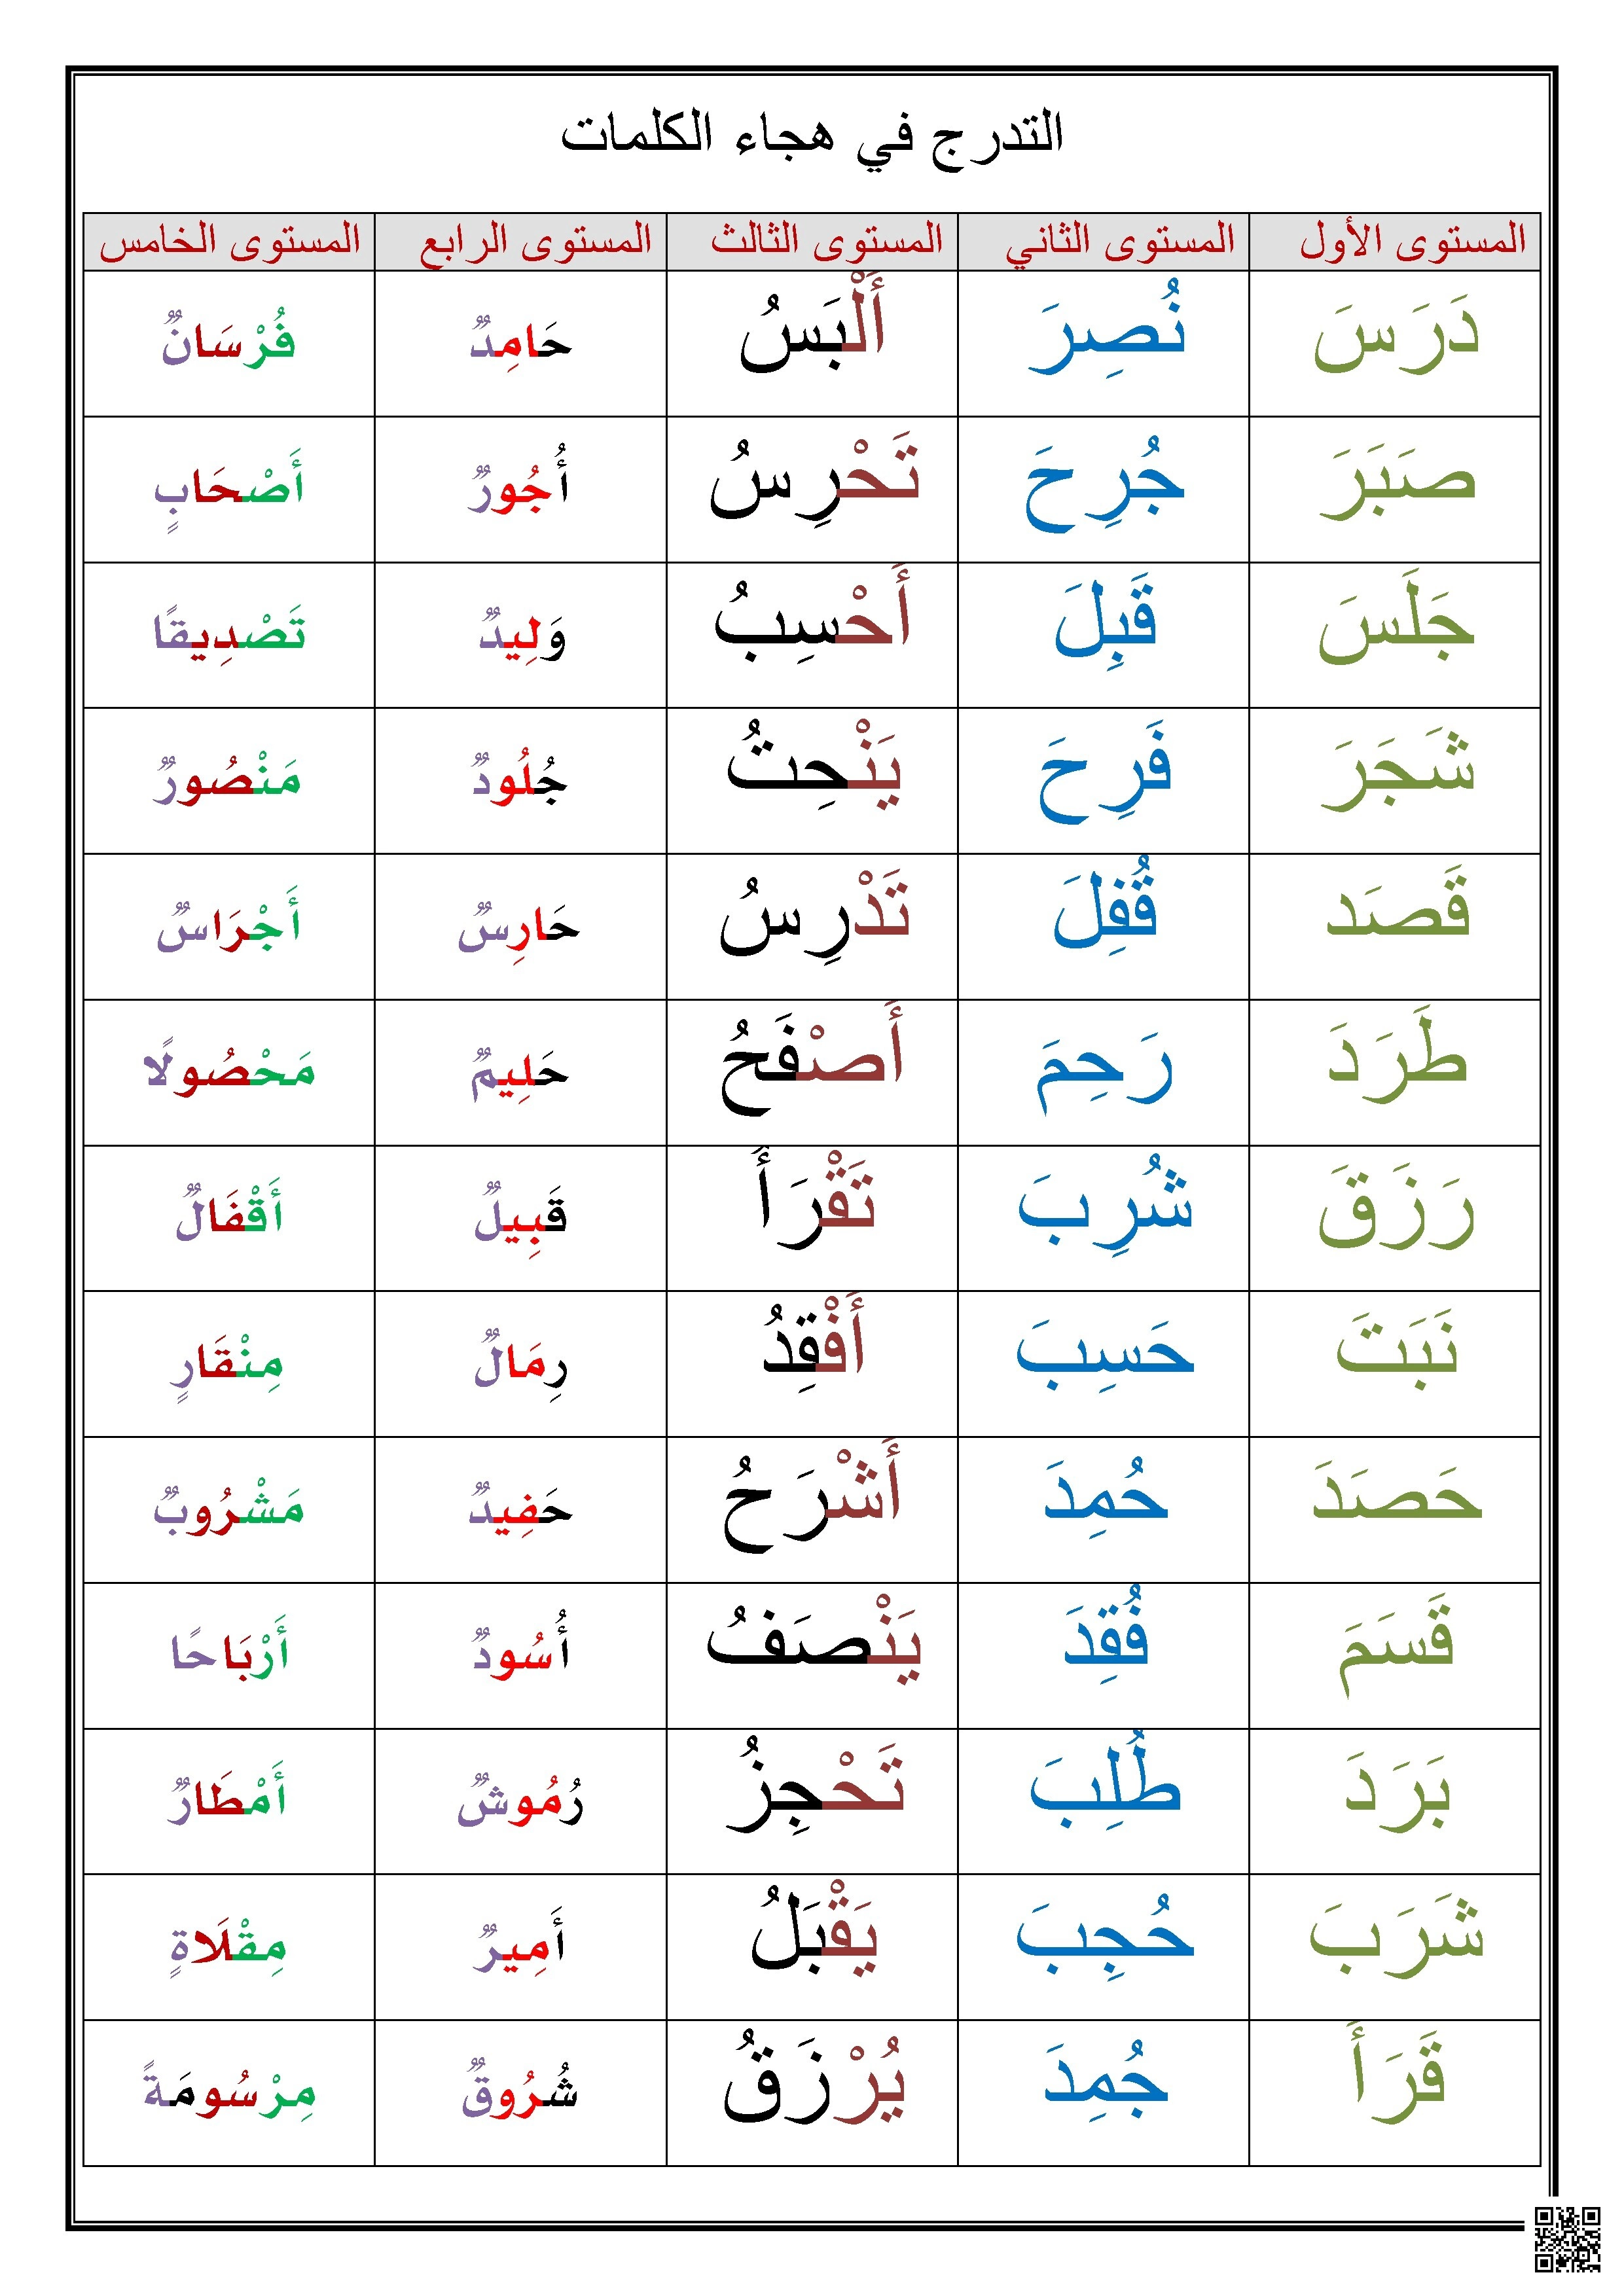 التدرج في هجاء الكلمات
المستوى الأول المستوى الثاني المستوى الثالث المستوى الرابع المستوى الخامس
دَرَسَ نُصِرَ أَلْبَسُ حَامِدٌ فُرْسَانٌ
صَبَرَ جُرِحَ تَحْرِسُ أُجُورٌ أَصْحَابٍ
جَلَسَ قَبِلَ أَحْسِبُ وَلِيدٌ تَصْدِيقًا
شَجَرَ فَرِحَ يَنْحِتُ جُلُودٌ مَنْصُورٌ
قَصَد قُفِلَ تَدْرِسُ حَارِسٌ أَجْرَاسٌ
طَرَدَ رَحِمَ أَصْفَحُ حَلِيمٌ مَحْصُولًا
رَزَقَ شُرِبَ تَقْرَأَ قَبِيلٌ أَقْفَالٌ
نَبَتَ حَسِبَ أَفْقِدُ رِمَالٌ مِنْقَارٍ
حَصَدَ حُمِدَ أَشْرَحُ حَفِيدٌ مَشْرُوبٌ
قَسَمَ فُقِدَ يَنْصَفُ أُسُودٌ أَرْبَاحًا
بَرَدَ طُلِبَ تَحْجِزُ رُمُوشٌ أَمْطَارٌ
شَرَبَ حُجِبَ يَقْبَلُ أَمِيرٌ مِقْلَاةٍ
قَرَأَ جُمِدَ يُرْزَقُ شُرُوقٌ مِرْسُومَةً